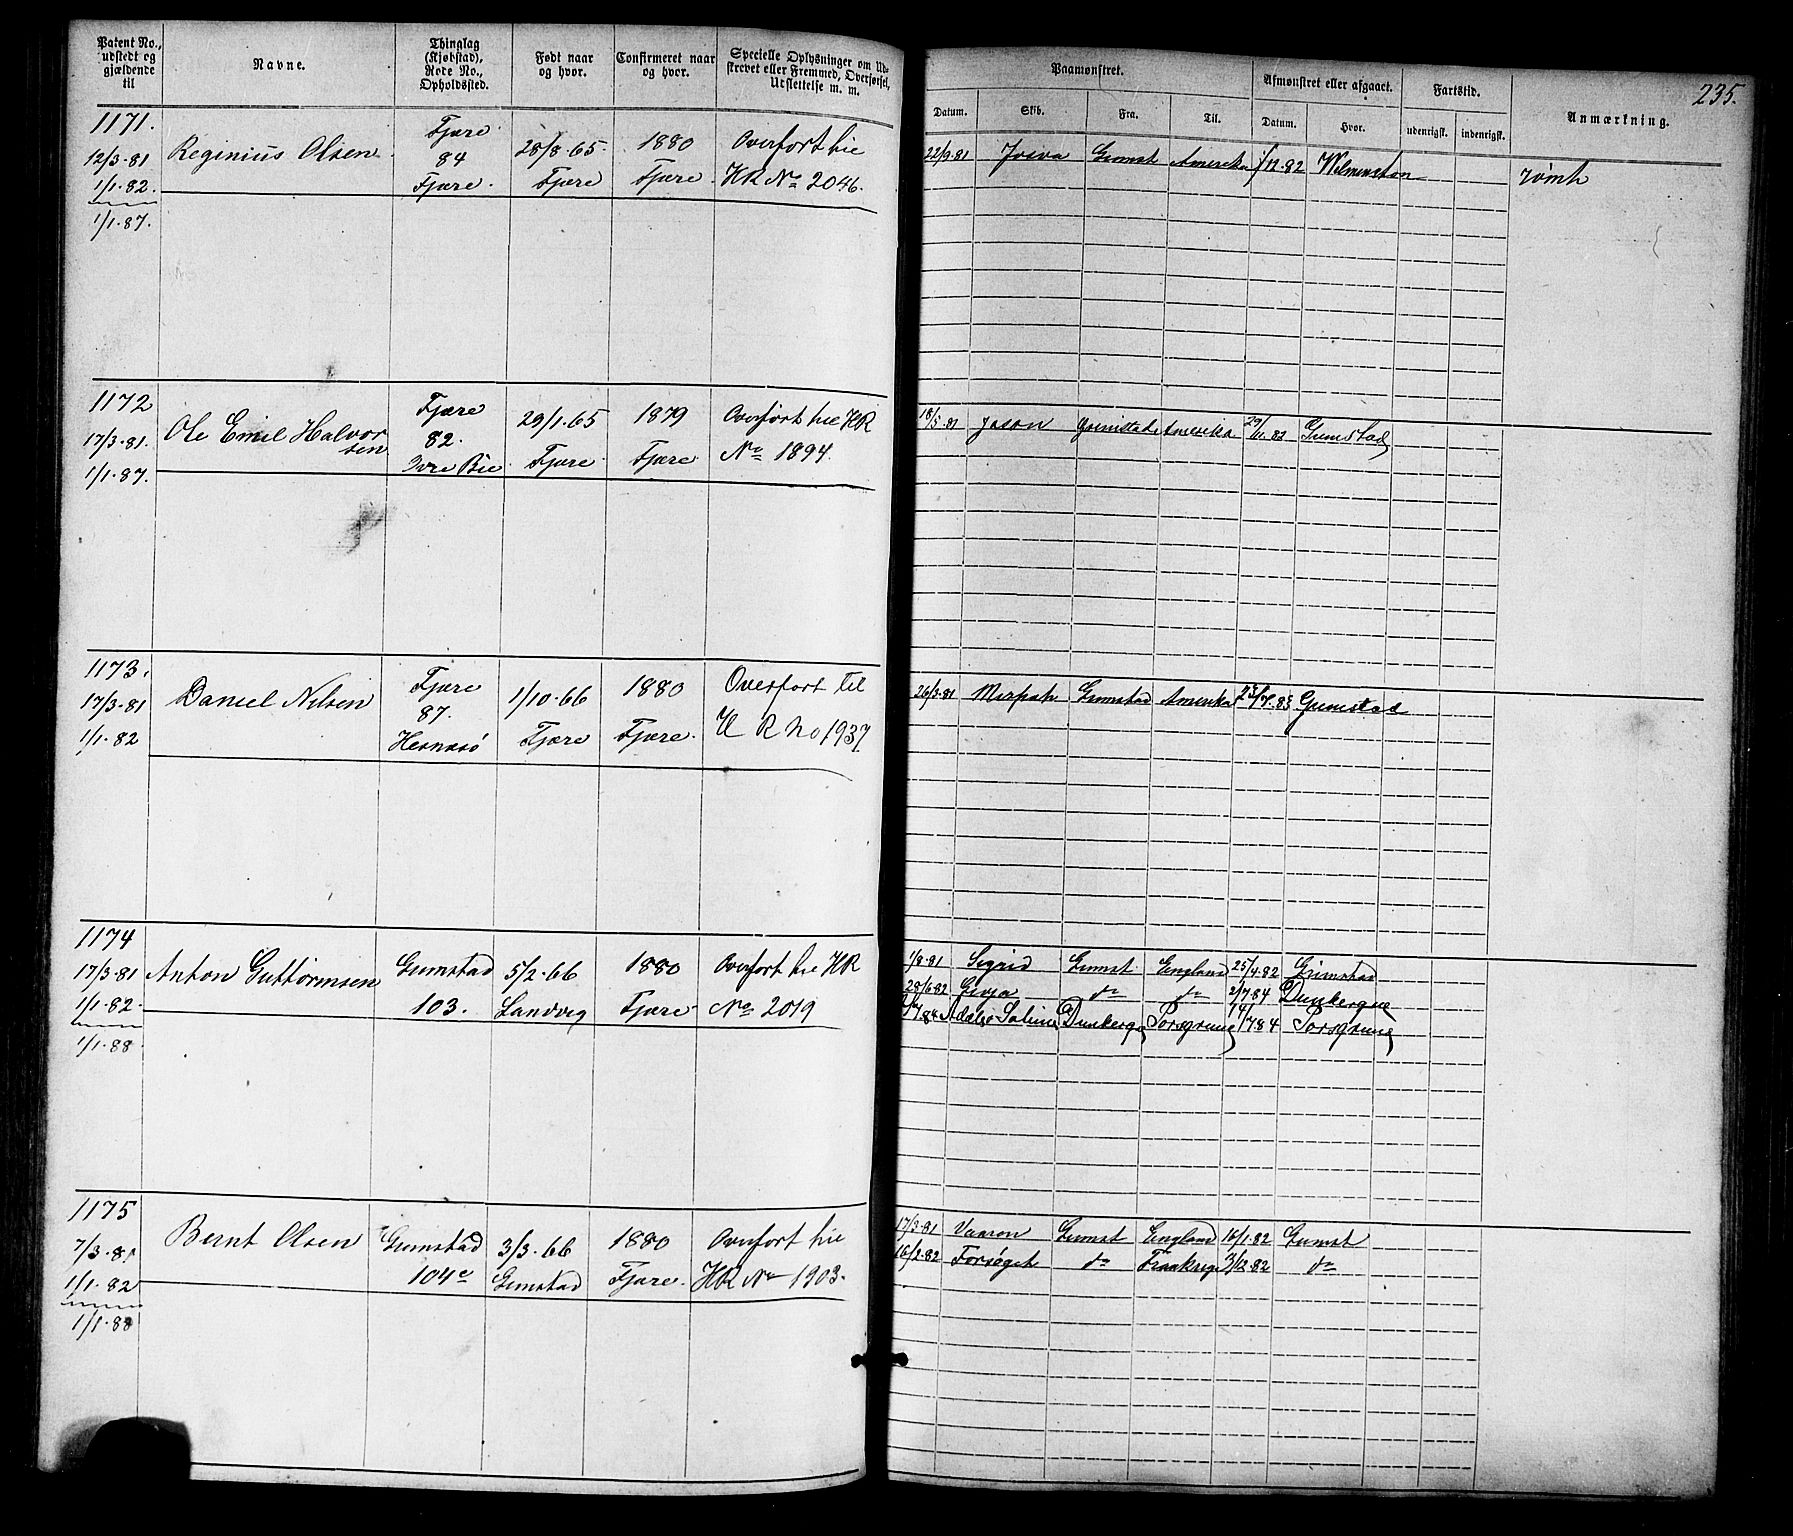 Patent No., udstedt og gjældende til
Navne.
Thinglag (Kjøbstad), Rode No., Opholdssted.
Født naar og hvor.
Confirmeret naar og hvor.
Specielle Oplysninger om Udskrevet eller Fremmed, Overførsel, Udslettelse m. m.
Paamønstret.
Datum. Skib. Fra. Til.
Afmønstret eller afgaaet.
Datum. Hvor.
Fartstid.
udenrigsk. indenrigsk.
Anmærkning.
235.
1171.
12/3-81
1/1-82.
1/1-87.
Reginius Olsen
Fjære
84
Fjære.
28/8-65.
Fjære
1880
Fjære.
Overført hie
HR No 2046.
22/9-81 Grimst Amerika /12-82 rømt
1172
17/3-81.
1/1-87.
Ole Emil Halvor
sen
Fjære
82.
Bie
29/1-65
Fjære
1879
Fjære
Overført hie HR
No 1894.
18/5-81 Jason Grimstad Amerika 29/11-82 Grimstad
1173.
17/3-81
1/1-82
Daniel Nilsen
Fjære
87.
Hesnesø
1/10-66
Fjære
1880
Fjære.
Overført til
H R No 1937
26/3-81 Grimstad Amerika 23/7-83 Grimstad
1174
17/3-81
1/1-82.
1/1-88
Anton Guttormsen
Grimstad
103.
5/2-66
Landvig
1880
Fjære
Overført hie HR
No 2019
1/8-81 Sigrid Grimst England 25/4-82 Grimstad
28/6-82 do do 2/7 84 Dunkerque
Dunkerque Porsgrund 14/7 84 Porsgrund
1175
7/3-81
1/1-82
1/1-88
Bernt Olsen
Grimstad
104c
3/3-66
Grimstad
1880
Fjære.
Overført hie
HR No 1903.
17/3-81 Grimst England 16/1-82 Grimst
16/2-82 Forsøget do Frankrige 3/12 82 do